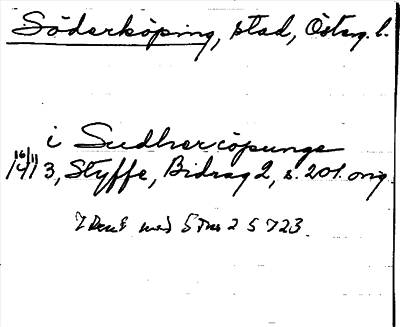 Söderköping, stad, Österg. l.
i Sudhercöpunge
16/11 1413, Styffe, Bidrag 2, s. 201. orig.
med 5 723.